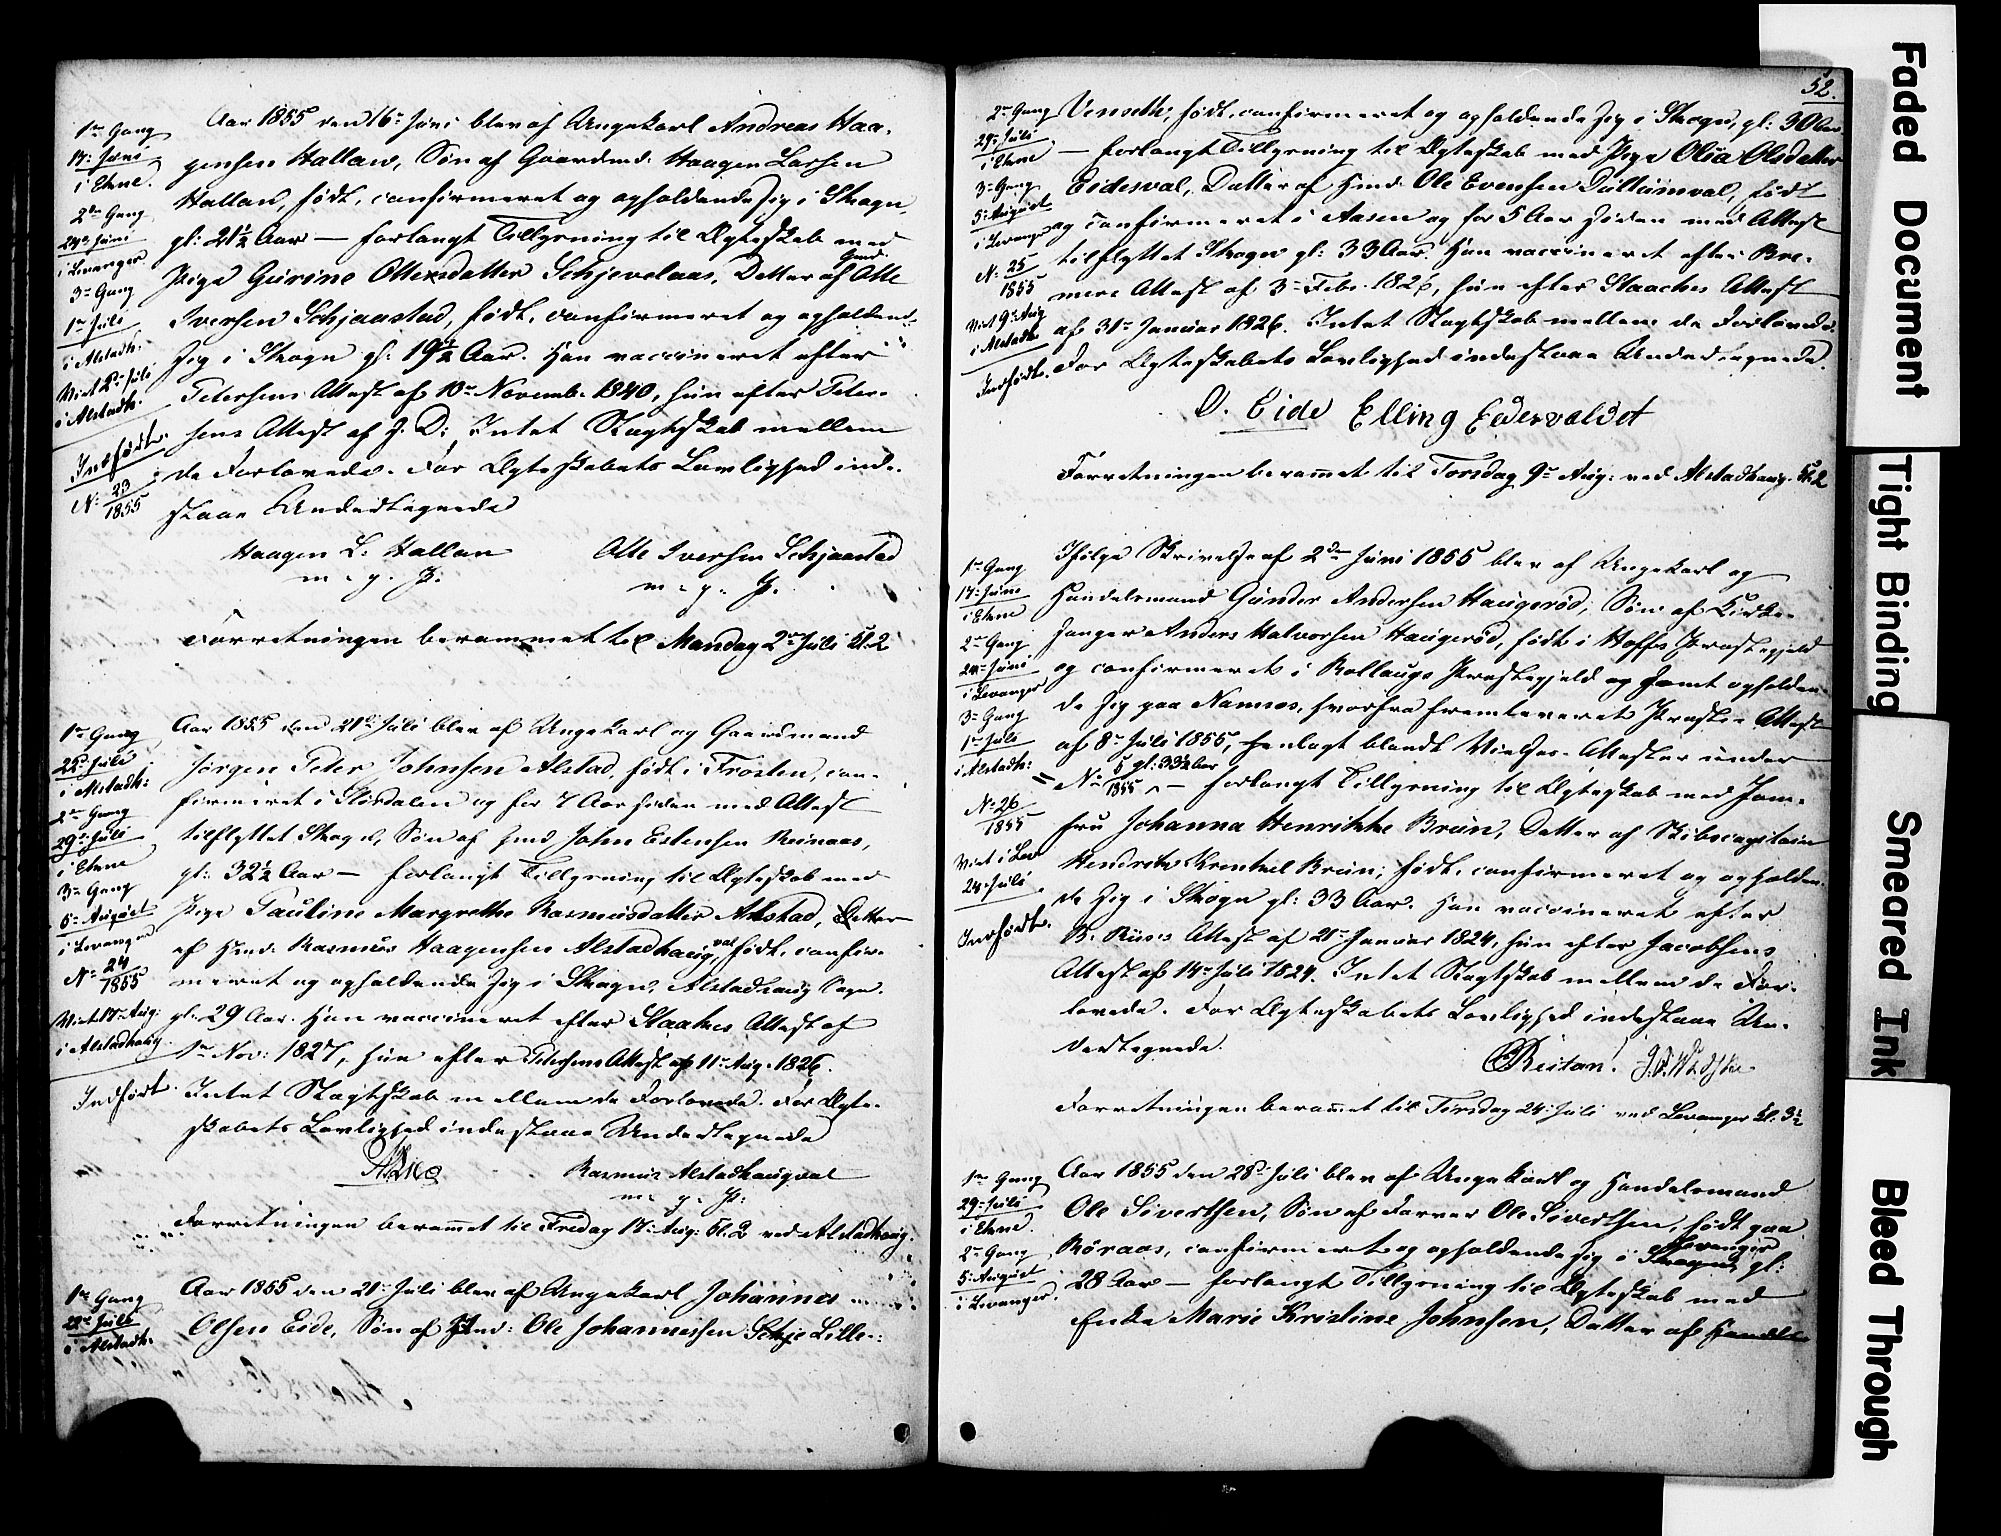 1ste Gang
17: Juni
i Ekne.
2den Gang
24de Juni
i Levanger.
3die Gang
1ste Juli
i Alstadh:
Viet 2den Juli
i Alstadh:
Indført.
N: 23/1855
Aar 1855 den 16de Juni blev af Ungekarl Andreas Haa-
gensen Hallan, Søn af Gaardmd: Haagen Larsen
Hallan, født, confirmeret og opholdende sig i Skogn,
gl: 21½ Aar — forlangt Tillysning til Ægteskab med
Pige Gurine Ottersdatter Schjevelaas, Datter af Gmd. Otte
Iversen Schjaastad, født, confirmeret og opholdend-
sig i Skogn gl: 19½ Aar. Han vaccineret efter
Petersens Attest af 10de Novemb: 1840, hun efter Peter-
sens Attest af J. D: Intet Slægtskab mellem
de Forlovede. For Ægteskabets Lovlighed inde-
staae Undertegnede
Haagen L: Hallan Otte Iversen Schjaastad
m. p. P. m. p. P.
Forretningen berammet til Mandag 2den Juli Kl. 2
1ste Gang
22de Juli
i Alstadh:
2den Gang
29de Juli
i Ekne
3die Gang
5te August
i Levanger
N: 24/1855
Viet 17de Aug:
i Alstadhaug.
Indført.
Aar 1855 den 21de Juli blev af Ungekarl og Gaardmand
Jørgen Peter Johnsen Alstad, født i Frosten, con-
firmeret i Størdalen og for 7 Aar siden med Attest
tilflyttet Skogn, Søn af Hmd John Estensen Reinaas,
gl: 32½ Aar — forlangt Tillysning til Ægteskab med
Pige Pauline Margrethe Rasmusdatter Alstad, Datter
af Hmd: Rasmus Haagensen Alstadhaugval, født, confir-
meret og opholdende sig i Skogn, Alstadhaug Sogn.
gl: 29 Aar. Han vaccineret efter Staahes Attest af
1ste Nov: 1827, hun efter Petersens Attest af 11te Aug. 1826.
Intet Slægtskab mellem de Forlovede. For Ægte-
skabets Lovlighed indestaae Undertegnede
Rasmus Alstadhaugval
m. p. P.
Forretningen beramet til Fredag 17: Aug: Kl. 2 ved Alstadhaug.
1ste Gang
22de Juli
i Alstadh:
Aar 1855 den 21de Juli blev af Ungekarl Johannes
Olsen Eide, Søn af Hmd: Ole Johannessen Schje Lille-
52.
2den Gang
29. Juli
i Ekne
3die Gang
5: August
i Levanger
N: 25/1855
Viet 9de Aug
i Alstadh
Indført.
Venseth, født, confirmeret og opholdende sig i Skogn, gl: 30 Aar
— forlangt Tillysning til Ægteskab med Pige Olia Olsdatter
Eidesval, Datter af Hmd: Ole Evensen Dullumval, født
og confirmeret i Aasen og for 5 Aar siden med Attest
tilflyttet Skogn gl: 33 Aar. Han vaccineret efter Bre-
mers Attest af 3die Febr. 1826, hun efter Staaches Attest
af 31te Januar 1826. Intet Slægtskab mellem de Forlovede.
For Ægteskabets Lovlighed indestaae Undertegnede.
O. Eide Elling Edesvaldet
Forretningen beramet til Torsdag 9de Aug: ved Alstadhaug. Kl. 2
1ste Gang
17: Juni
i Ekne
2den Gang
24de Juni
i Levanger
3die Gang
1ste Juli
i Alstadh:
N: 26/1855
Viet i Lev
24. Juli
Indført.
Ifølge Skrivelse af 2den Juni 1855 blev af Ungekarl og
Handelsmand Gunder Andersen Haugerød, Søn af Kirke-
sanger Anders Halvorsen Haugerød, født i Hoffs Præstegjeld
og confirmeret i Rollaugs Præstegjeld og samt opholden-
de sig paa Namsos, hvorfra fremleveret Præste-Attest
af 8de Juli 1855, henlagt blandt Vielses-Attester under
N: 5/1855 gl: 33½ Aar — forlangt Tillysning til Ægteskab med Jom-
fru Johanna Henrikke Brun, Datter af Skibscapitain
Hendrik Brun, født, confirmeret og opholden-
de sig i Skogn gl: 33 Aar. Han vaccineret efter
B. Riis's Attest af 21de Januar 1824, hun efter Jacobsens
Attest af 14de Juli 1824. Intet Slægtskab mellem de For-
lovede. For Ægteskabets Lovlighed indestaae Un-
dertegnede.
Forretningen beramet til Tirsdag 24: Juli ved Levanger Kl. 3½
1ste Gang
29. Juli
i Ekne.
2den Gang
5: August
i Levanger.
Aar 1855 den 28de Juli blev af Ungekarl og Handelsmand
Ole Sivertsen, Søn af Farver Ole Sivertsen, født paa
Røraas, confirmeret og opholdende sig i Skogn Levanger gl:
28 Aar — forlangt Tillysning til Ægteskab med
Enke Marie Kristine Johnsen, Datter af Handels
Faded Document
Tight Binding
Smeared Ink
Bleed Through